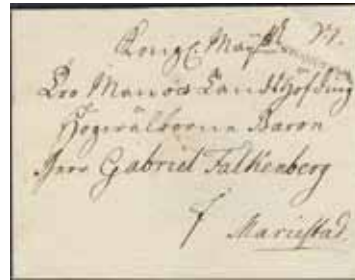 Kongl. Maij:tz
Tro Man och Landshöfding
Högwälborne Baron
Herr Gabriel Falkenberg
f Mariestad.